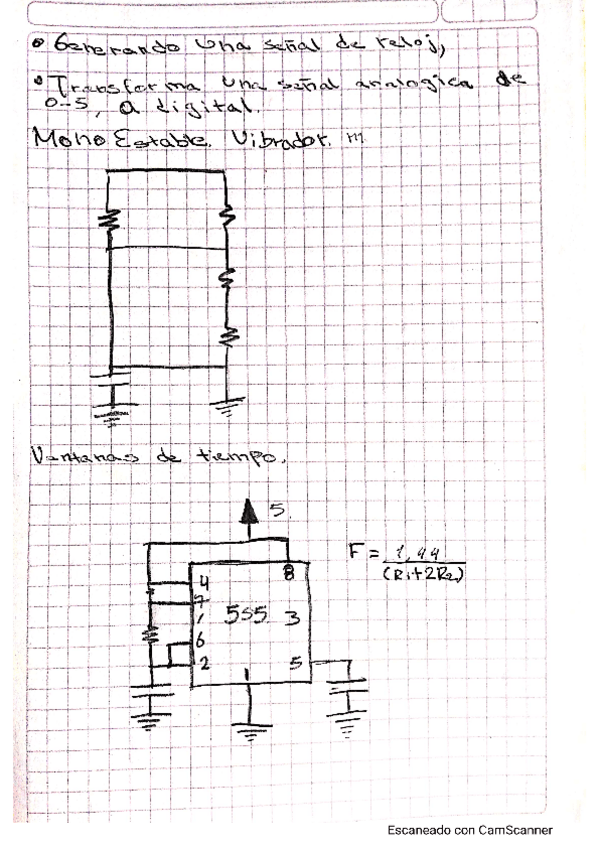 • Generando Una señal de reloj,
• Transforma una señal analogica de
0-5, a digital.
Mono Estable. Vibrador. m
Ventanas de tiempo.
5
F = 1,44
(R1+2R2)
8
4
7
555 3
6
2
5
1
Escaneado con CamScanner